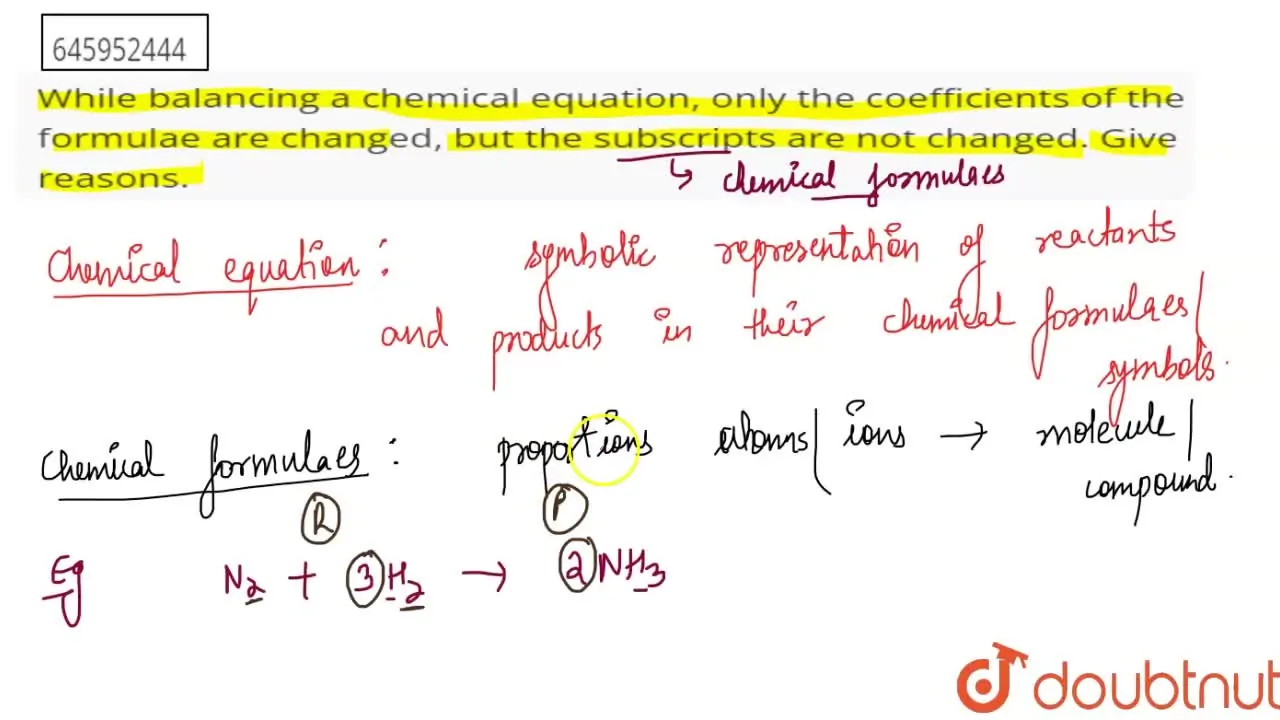 645952444
While balancing a chemical equation, only the coefficients of the
formulae are changed, but the subscripts are not changed. Give
reasons.
↳ chemical formulaes
Chemical equation : symbolic representation of reactants
and products in their chemical formulaes/
symbols.
Chemical formulaes : proportions atoms/ ions → molecule/
compound.
R P
Eg N2 + 3H2 → 2NH3
doubtnut